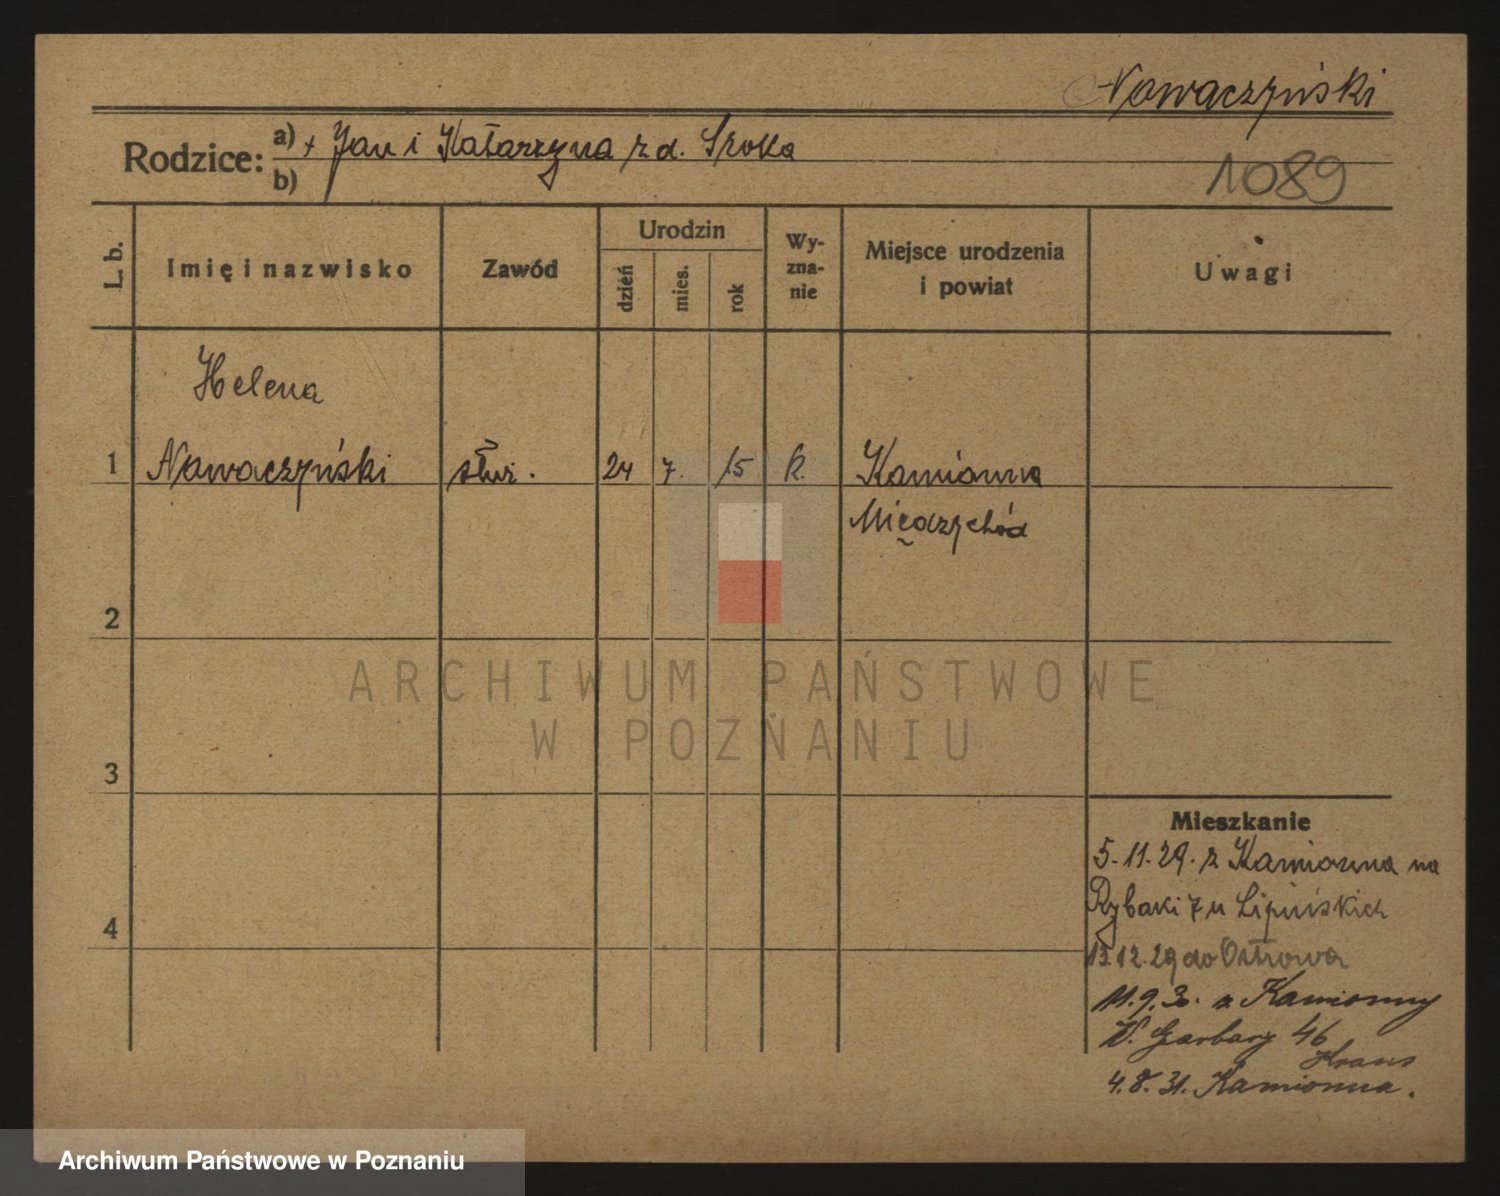 Nowaczyński
Rodzice:
a) + Jan i Katarzyna z d. Sroka
b)
1089
L. b.
Imię i nazwisko
Zawód
Urodzin
dzień
mies.
rok
Wy-
zna-
nie
Miejsce urodzenia
i powiat
Uwagi
Helena
1 Nowaczyński służ. 24 7. 15 k. Kamionna
Międzychód
2
3
4
Mieszkanie
5.11.29. z Kamionna na
Rybaki 7 u Lipińskich
13.12.29 do Ostrowa
11.9.30. z Kamionny
W. Garbary 46
Kraus
4.8.31. Kamionna.
ARCHIWUM PAŃSTWOWE
W POZNANIU
Archiwum Państwowe w Poznaniu